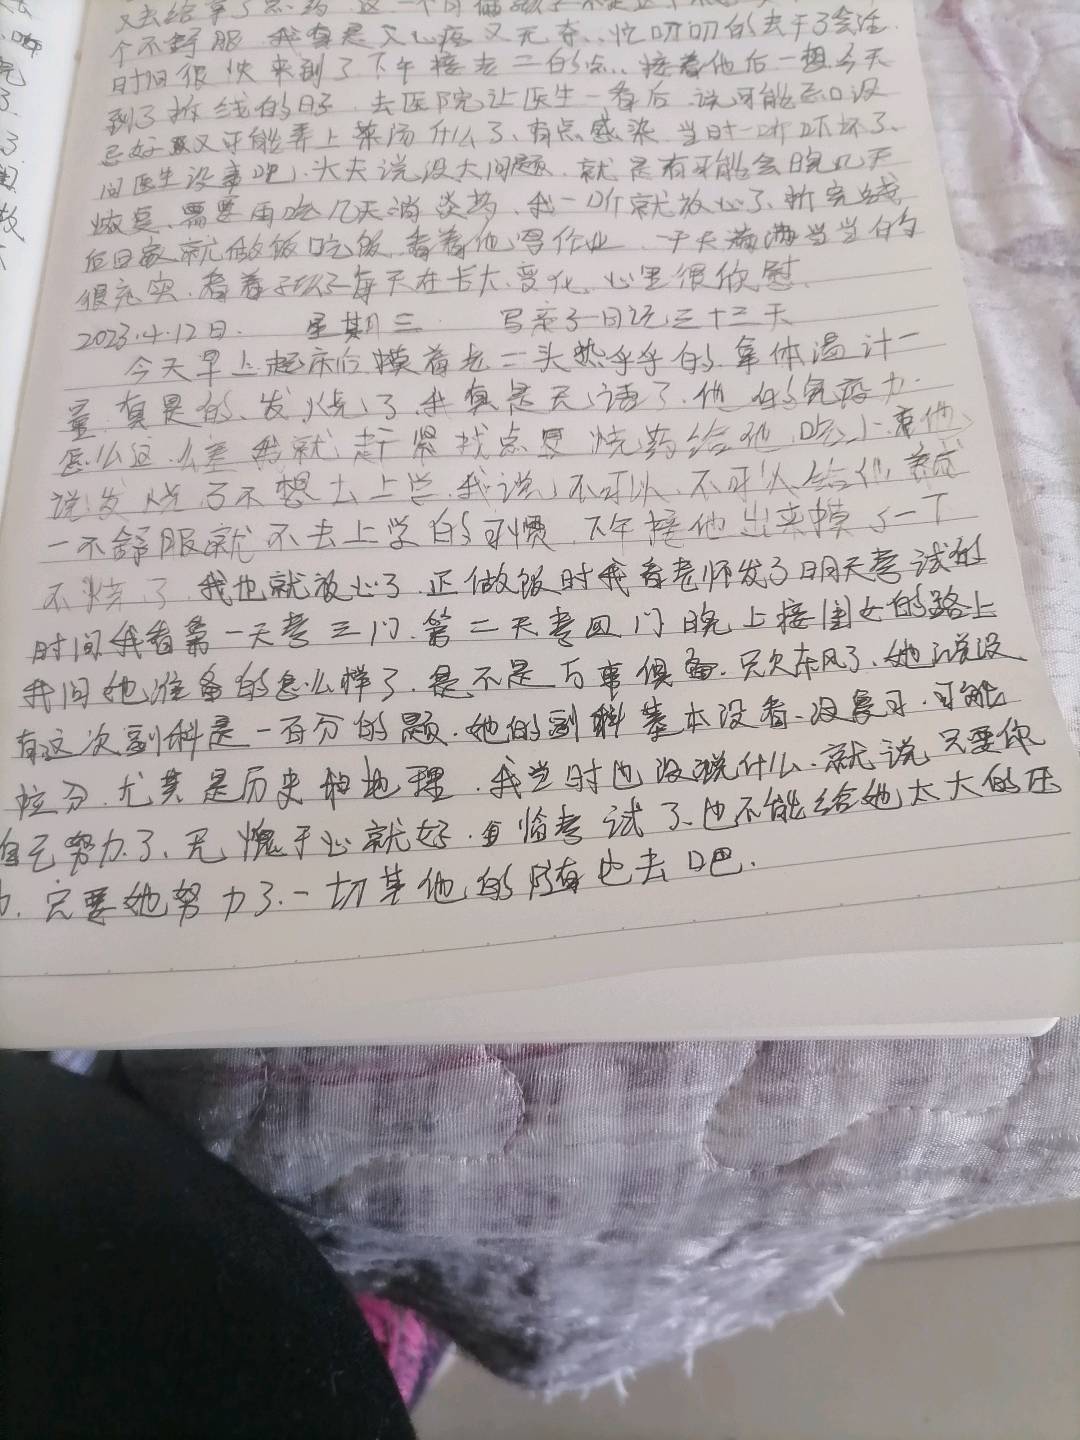 又去给拿了点药 这一个
个不舒服 我真是又心疼又无奈、忙叨叨的去干了会活.
时间很快来到了下午接老二的点、接着他后一想今天
到了拆线的日子 去医院让医生一看后 说可能忌口没
忌好 又可能弄上菜汤什么了、有点感染 当时一听吓坏了、
问医生没事吧、大夫说没大问题 就是有可能会晚几天
恢复、需要再吃几天消炎药、我一听就放心了、拆完线
后回家就做饭吃饭 看着他写作业 一天满满当当的
很充实、看着孩子每天在长大、变化、心里很欣慰.
2023.4.12日. 星期三 写亲子日记三十三天
今天早上起床后摸着老二头热乎乎的拿体温计一
量 真是的、发烧了 我真是无语了、他的免疫力.
怎么这么差 我就赶紧找点退烧药给他吃上 他
说发烧了不想去上学、我说、不可以、不可以给他养成
一不舒服就不去上学的习惯、下午接他出来摸了一下
不烧了 我也就放心了、正做饭时我看老师发了明天考试的
时间 我看第一天考三门、第二天考四门 晚上接闺女的路上
我问她准备的怎么样了、是不是万事俱备、只欠东风了、她说没
有 这次副科是一百分的题、她的副科基本没看、没复习、可能
拉分、尤其是历史和地理、我当时也没说什么、就说只要你
自己努力了、无愧于心就好、临考试了、也不能给她太大的压
力、只要她努力了、一切其他的随它去吧.